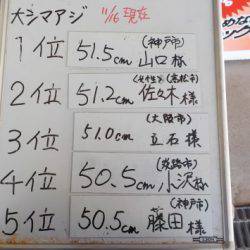 大シマアジ 11/16 現在
1位 51.5cm (神戸市) 山口様
2位 51.2cm (高松市) 佐々木様
3位 51.0cm (大阪市) 立石様
4位 50.5cm (淡路市) 小沢様
5位 50.5cm (神戸市) 藤田様